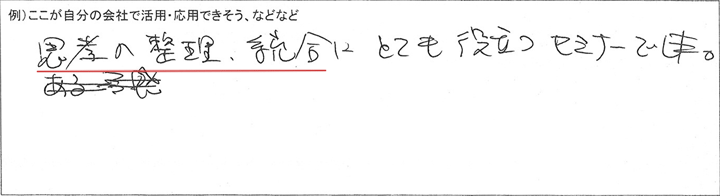 例)ここが自分の会社で活用・応用できそう、などなど
思考の整理、統合に とても 役立つ セミナーでした。